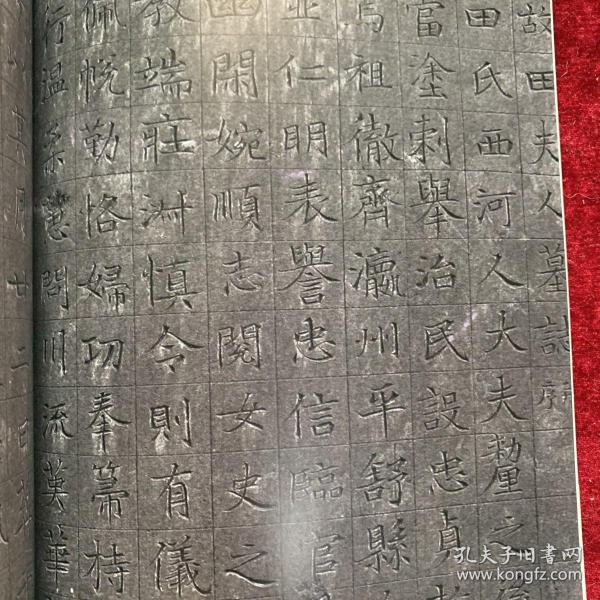 故田夫人墓誌序
田氏西河人大夫釐之後
當塗刺舉治民設忠貞
焉祖徹齊瀛州平舒縣
並仁明表譽忠信臨官
幽閑婉順志閱女史之
教端莊淑慎令則有儀
佩帨勤恪婦功奉箒持
行温柔惠問川流英華
其月廿二日
孔夫子旧书网
www.kongfz.com